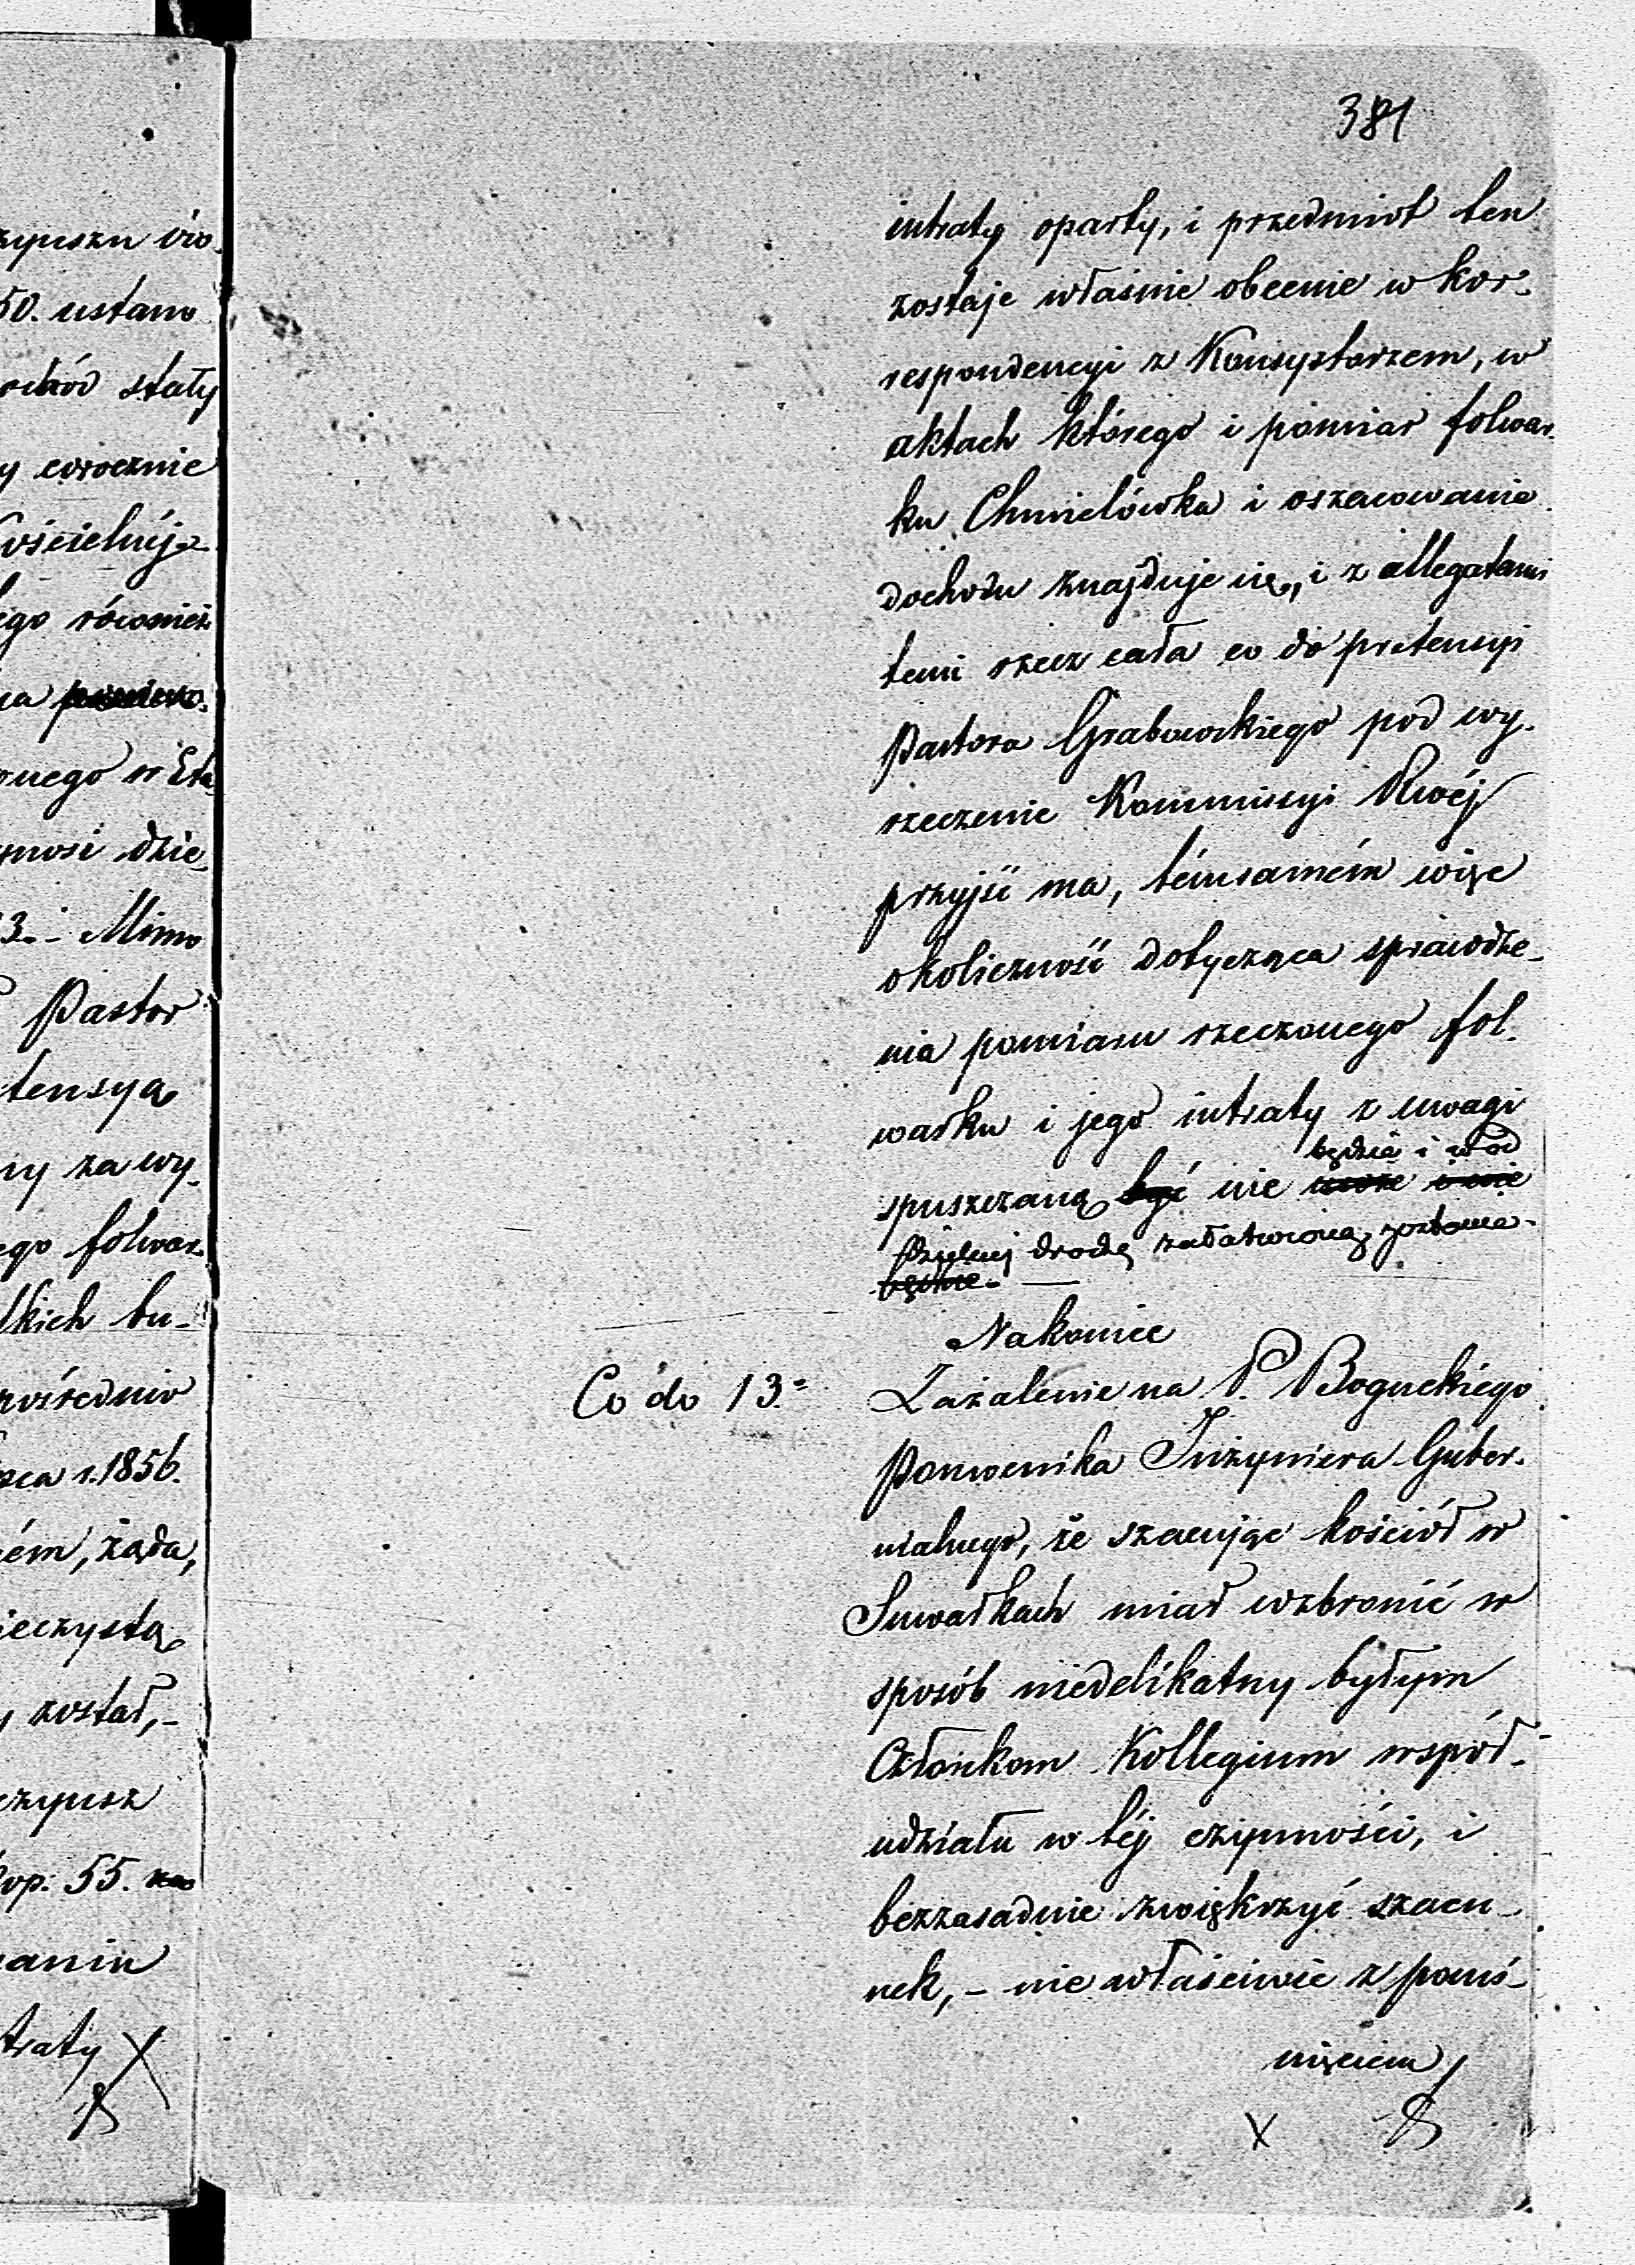 zypuszu 
50. ustano
ochód stały
y corocznie
Kościelnéj
ego również
na
onego w Eta
ynosi dzie
3. - Mimo
Pastor
tensyą
ny za wy-
ego folwar
lkich bu-
pośrednio
rca r. 1856.
ém, żąda,
ieczystą
y został, -
czynsz
kop. 55.
aniu
traty
381
intraty oparty, i przedmiot ten
zostaje właśnie obecnie w kor-
respondencyi z Konsystorzem, w
aktach którego i pomiar folwar-
ku Chmielówka i oszacowanie
dochodu znajduje się, i z allegatami
temi rzecz cała co do pretensyi
Pastora Grabowskiego pod wy-
rzeczenie Kommissyi Rwéj
przyjść ma, témsamém więc
okoliczność dotycząca sprawdze-
nia pomiaru rzeczonego fol-
warku i jego intraty z uwagi
będzie i w od
spuszczaną być nie może i nie
dzielnej drodze załatwioną zostanie.
będzie. —
Nakoniec
Co do 13. Zażalenie na P. Boguckiego
Pomocnika Inżyniera Guber-
nialnego, że szacując kościół w
Suwałkach miał wzbronić w
sposób niedelikatny byłym
Członkom Kollegium współ-
udziału w téj czynności, i
bezzasadnie zwiększyć szacu-
nek, - nie właściwie z pomi-
nięciem